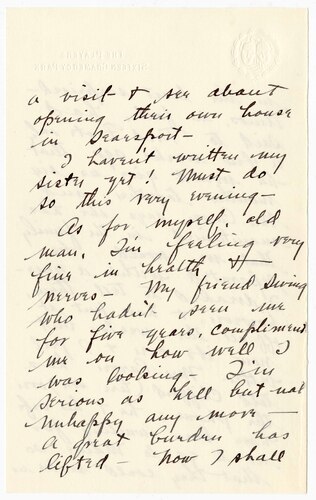 a visit & see about
opening their own house
in Searsport—
I haven't written my
sister yet! Must do
so this very evening—
As for myself, old
man, I'm feeling very
fine in health &
nerves— My friend Swing
who hadn't seen me
for five years, compliment
me on how well I
was looking— I'm
serious as hell but not
unhappy any more—
A great burden has
lifted— Now I shall